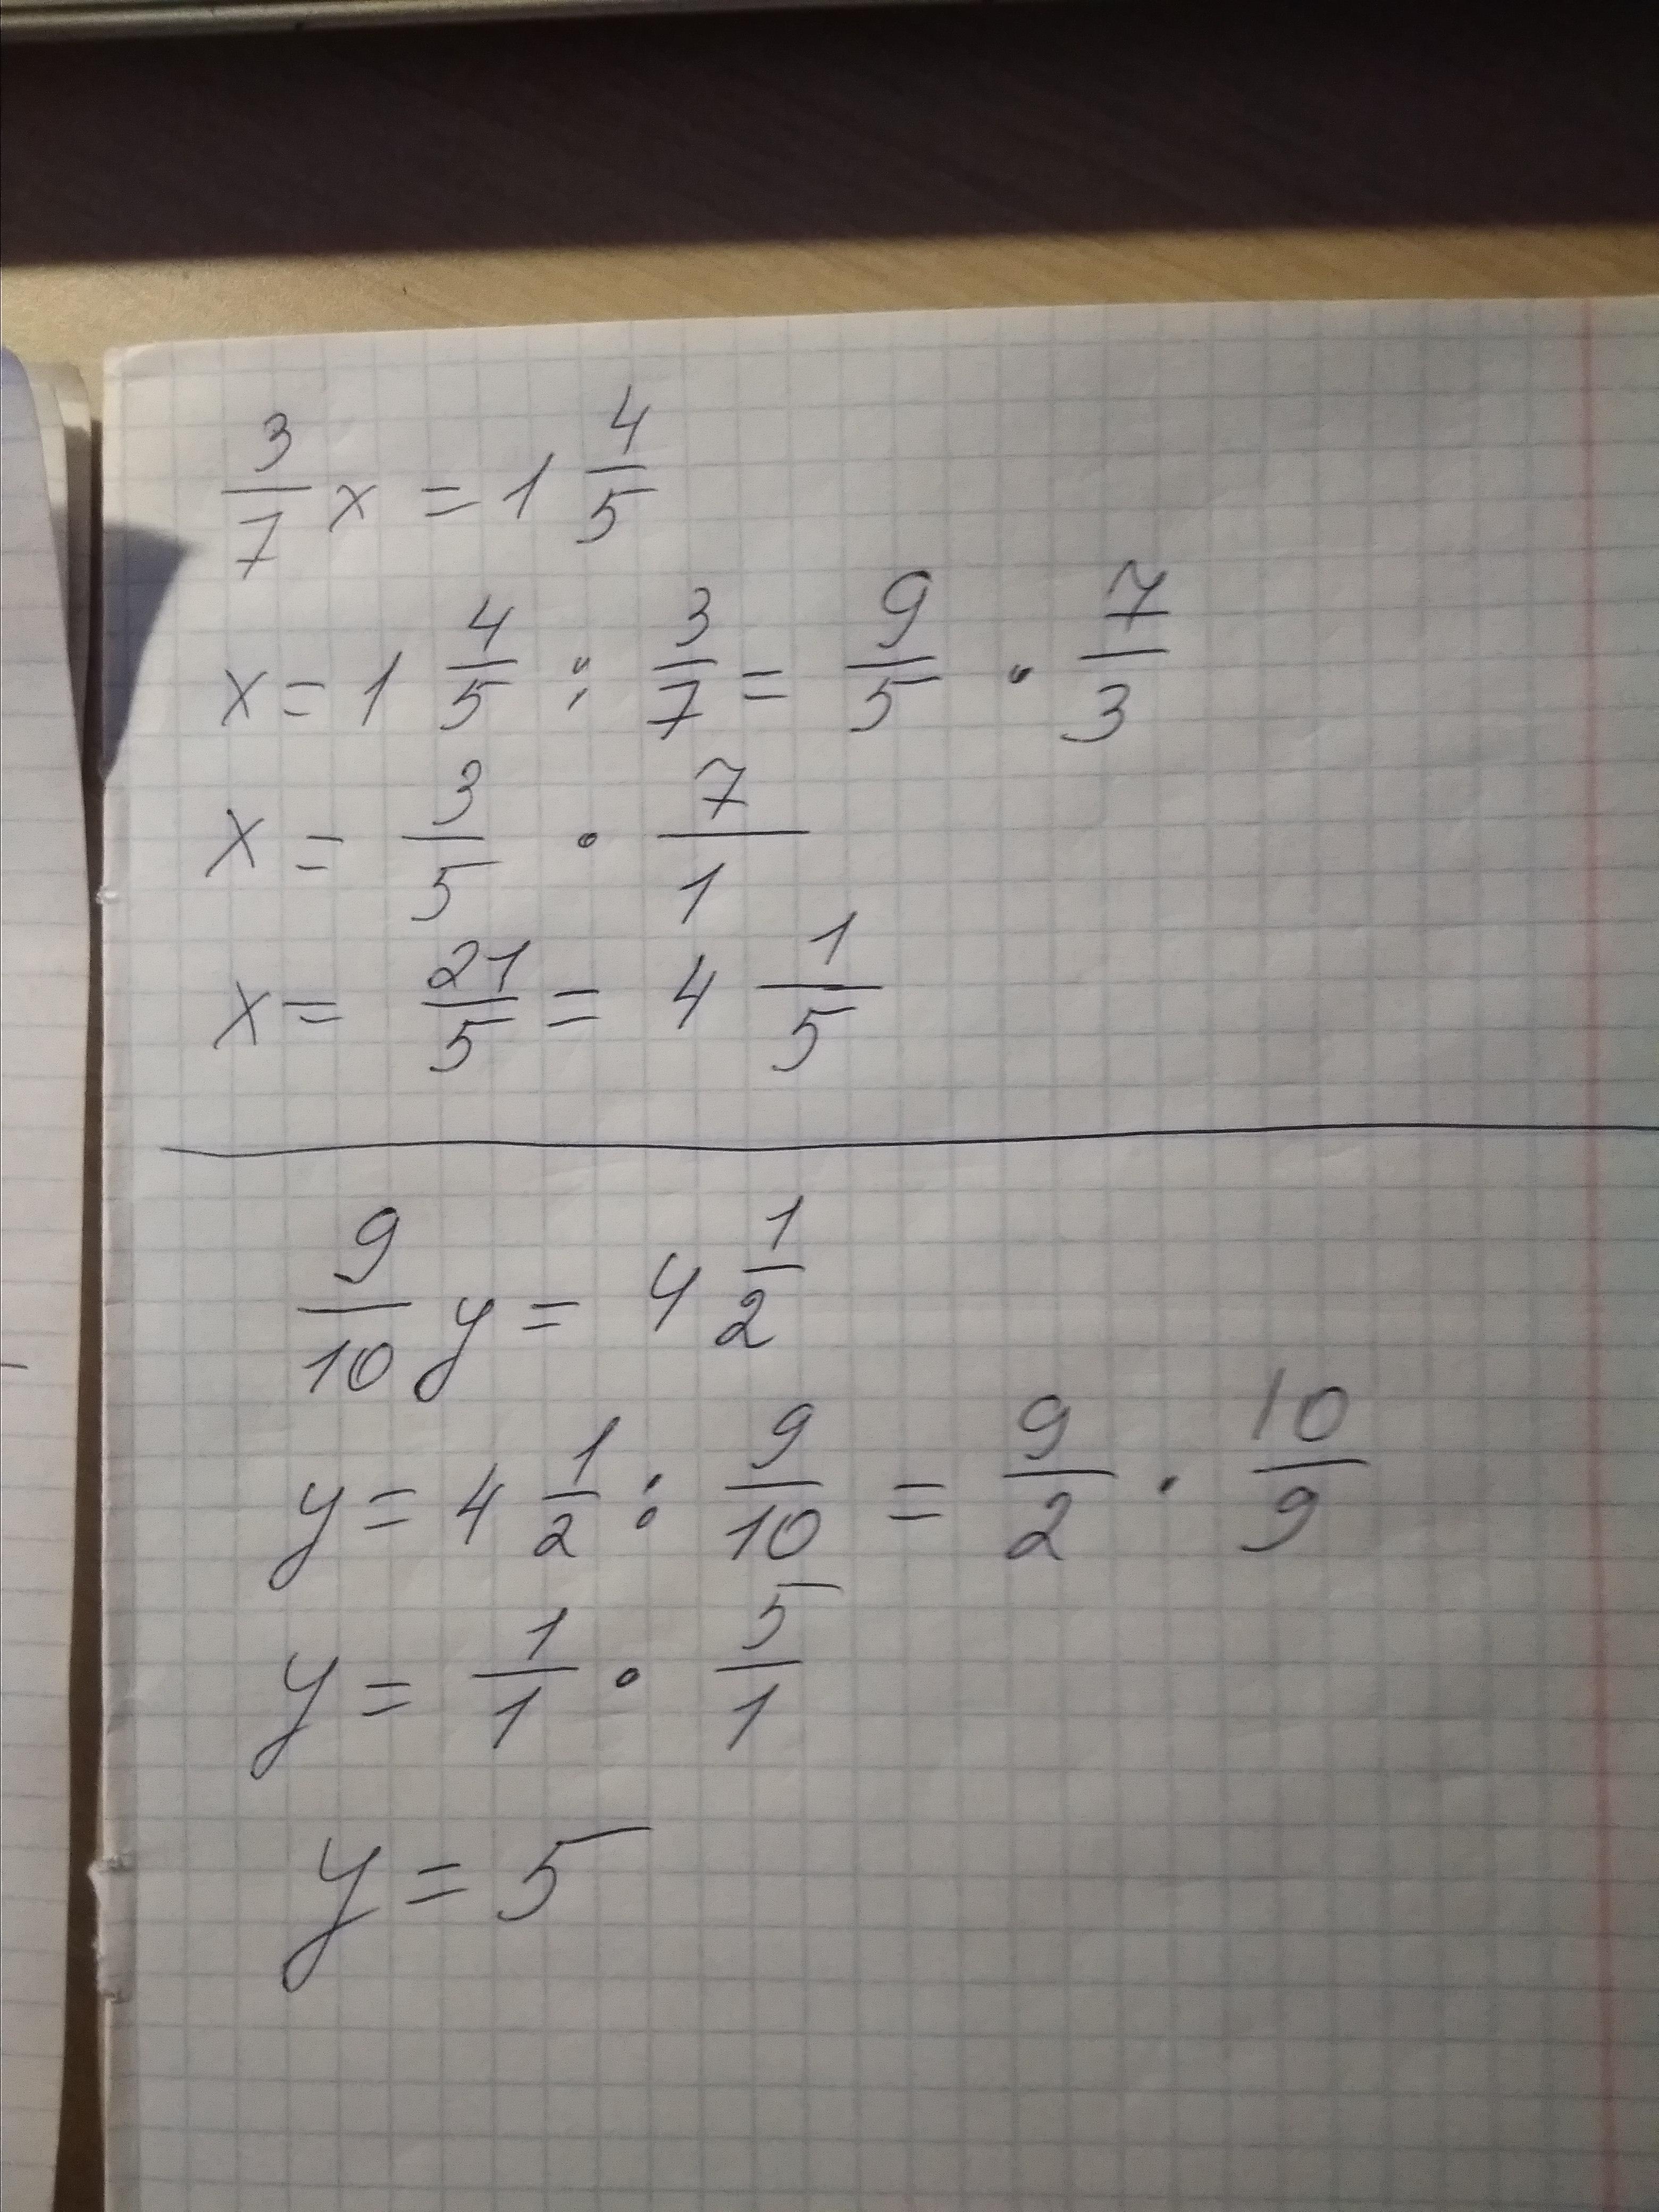 3/7 x = 1 4/5
x = 1 4/5 : 3/7 = 9/5 · 7/3
x = 3/5 · 7/1
x = 21/5 = 4 1/5
9/10 y = 4 1/2
y = 4 1/2 : 9/10 = 9/2 · 10/9
y = 1/1 · 5/1
y = 5